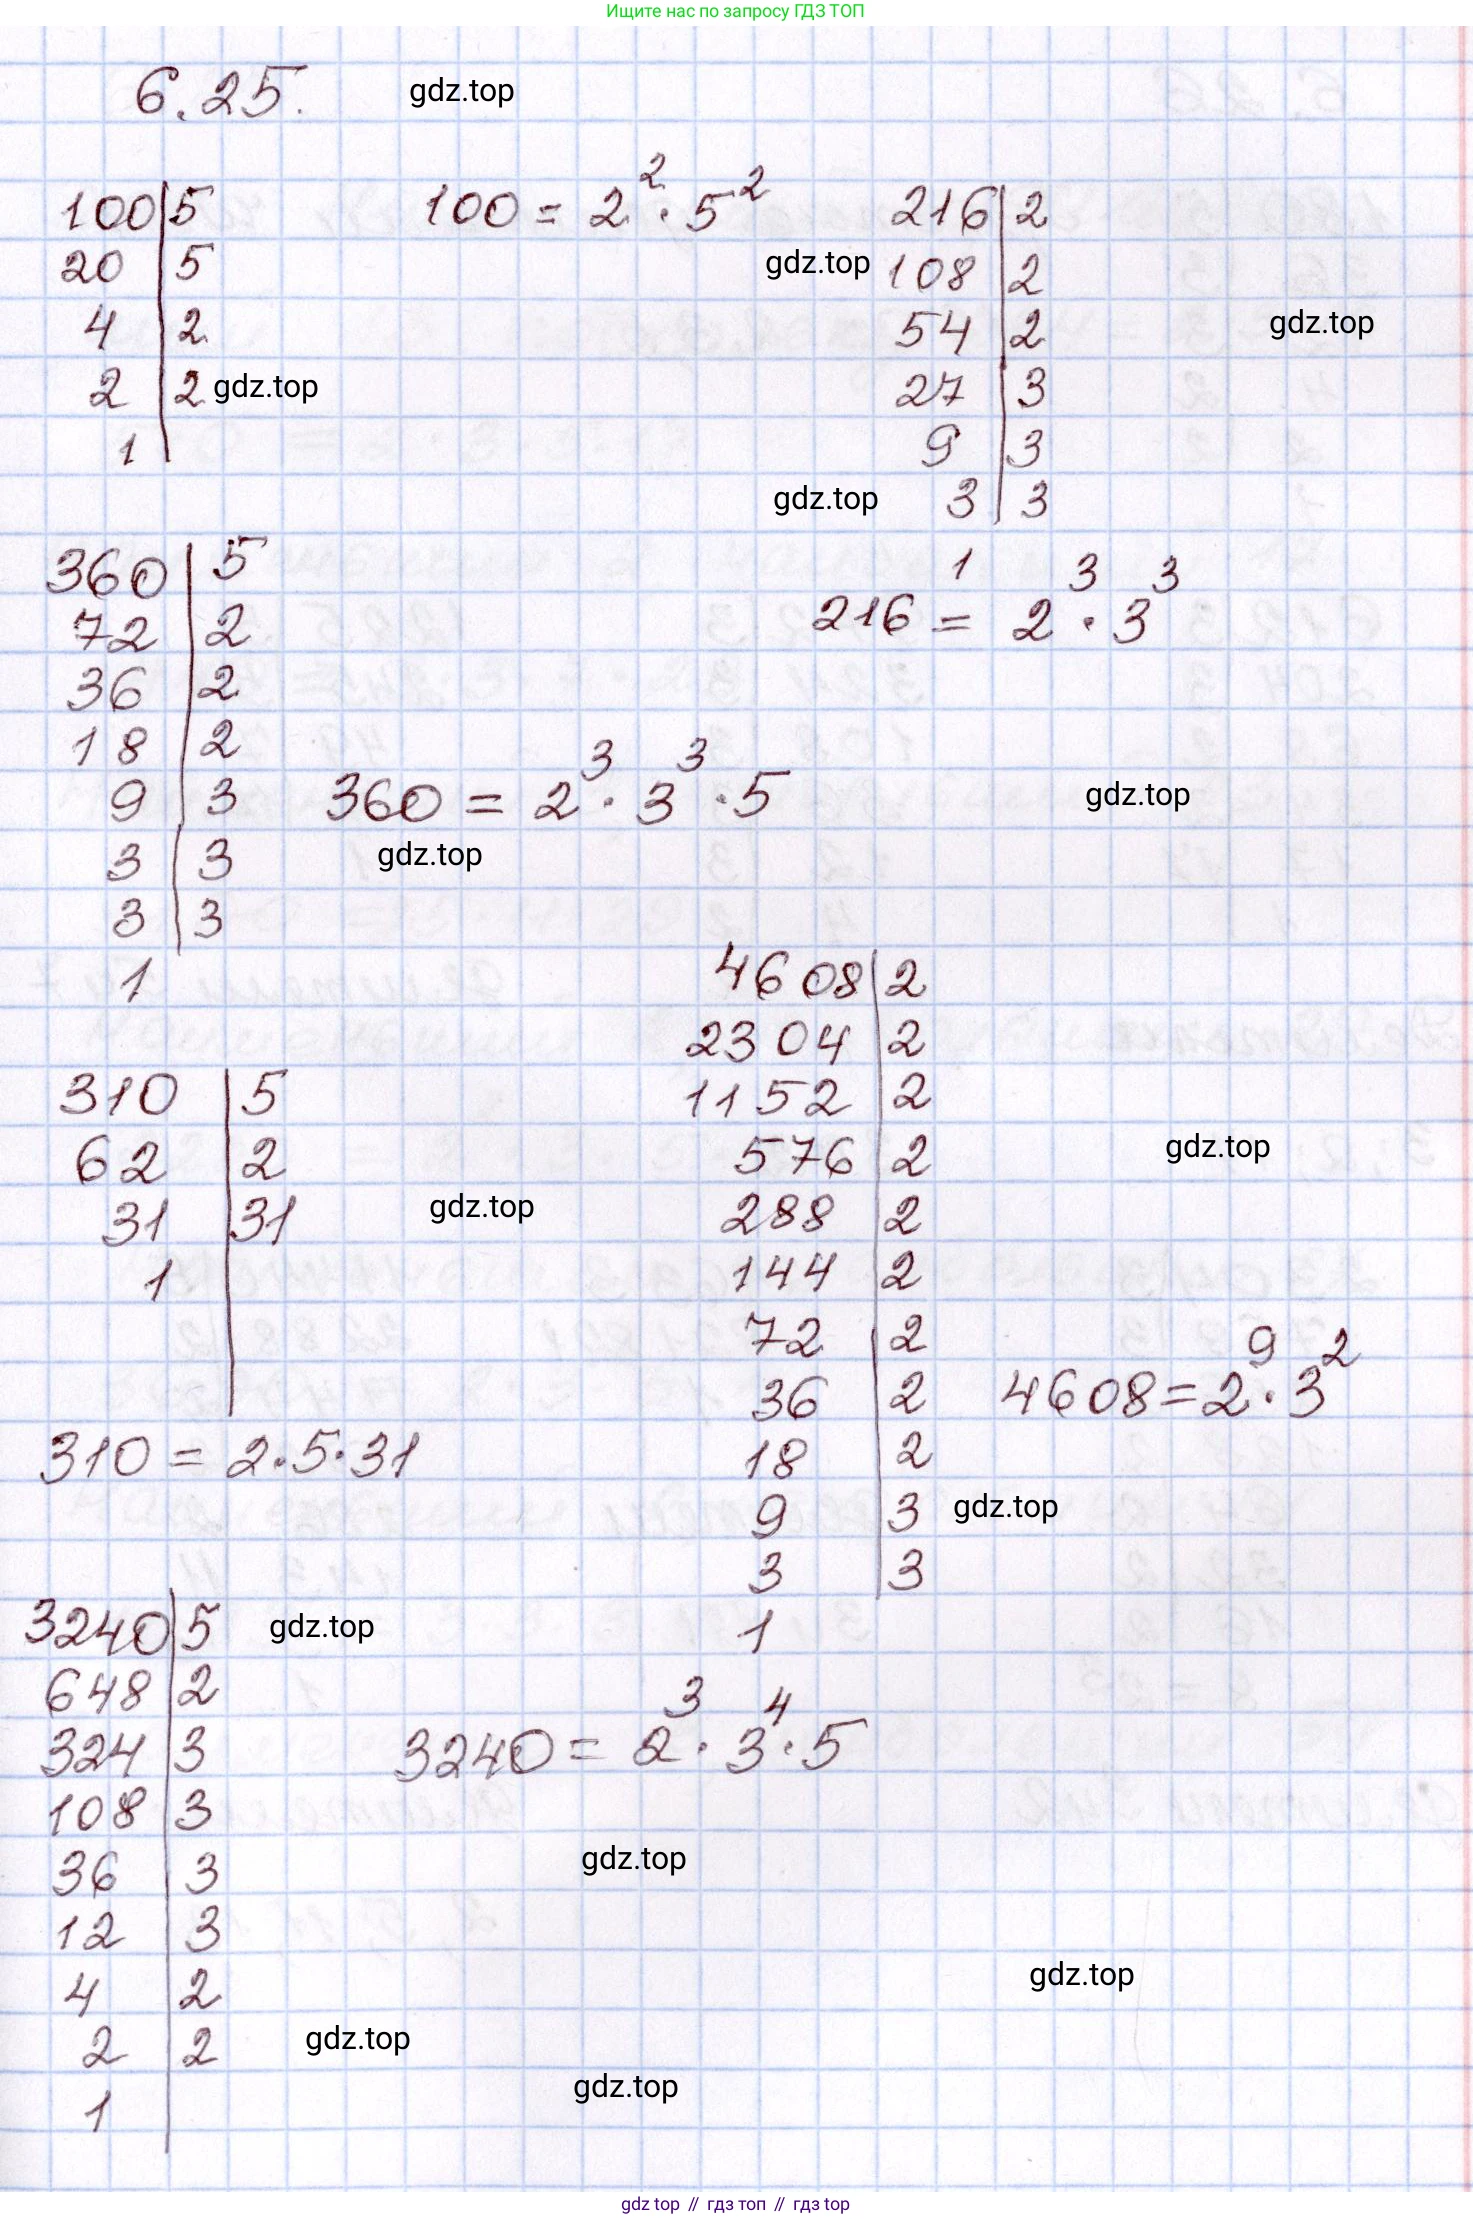 Ищите нас по запросу ГДЗ ТОП
6.25.
gdz.top
100|5
20|5
4|2
2|2
1
gdz.top
100 = 2²·5²
gdz.top
216|2
108|2
54|2
27|3
9|3
3|3
1
gdz.top
gdz.top
216 = 2³·3³
360|5
72|2
36|2
18|2
9|3
3|3
3|3
1
360 = 2³·3³·5
gdz.top
gdz.top
310|5
62|2
31|31
1
gdz.top
310 = 2·5·31
4608|2
2304|2
1152|2
576|2
288|2
144|2
72|2
36|2
18|2
9|3
3|3
1
gdz.top
4608=2⁹·3²
gdz.top
3240|5
648|2
324|3
108|3
36|3
12|3
4|2
2|2
1
gdz.top
3240 = 2³·3⁴·5
gdz.top
gdz.top
gdz.top
gdz.top
gdz top // гдз топ // гдз top